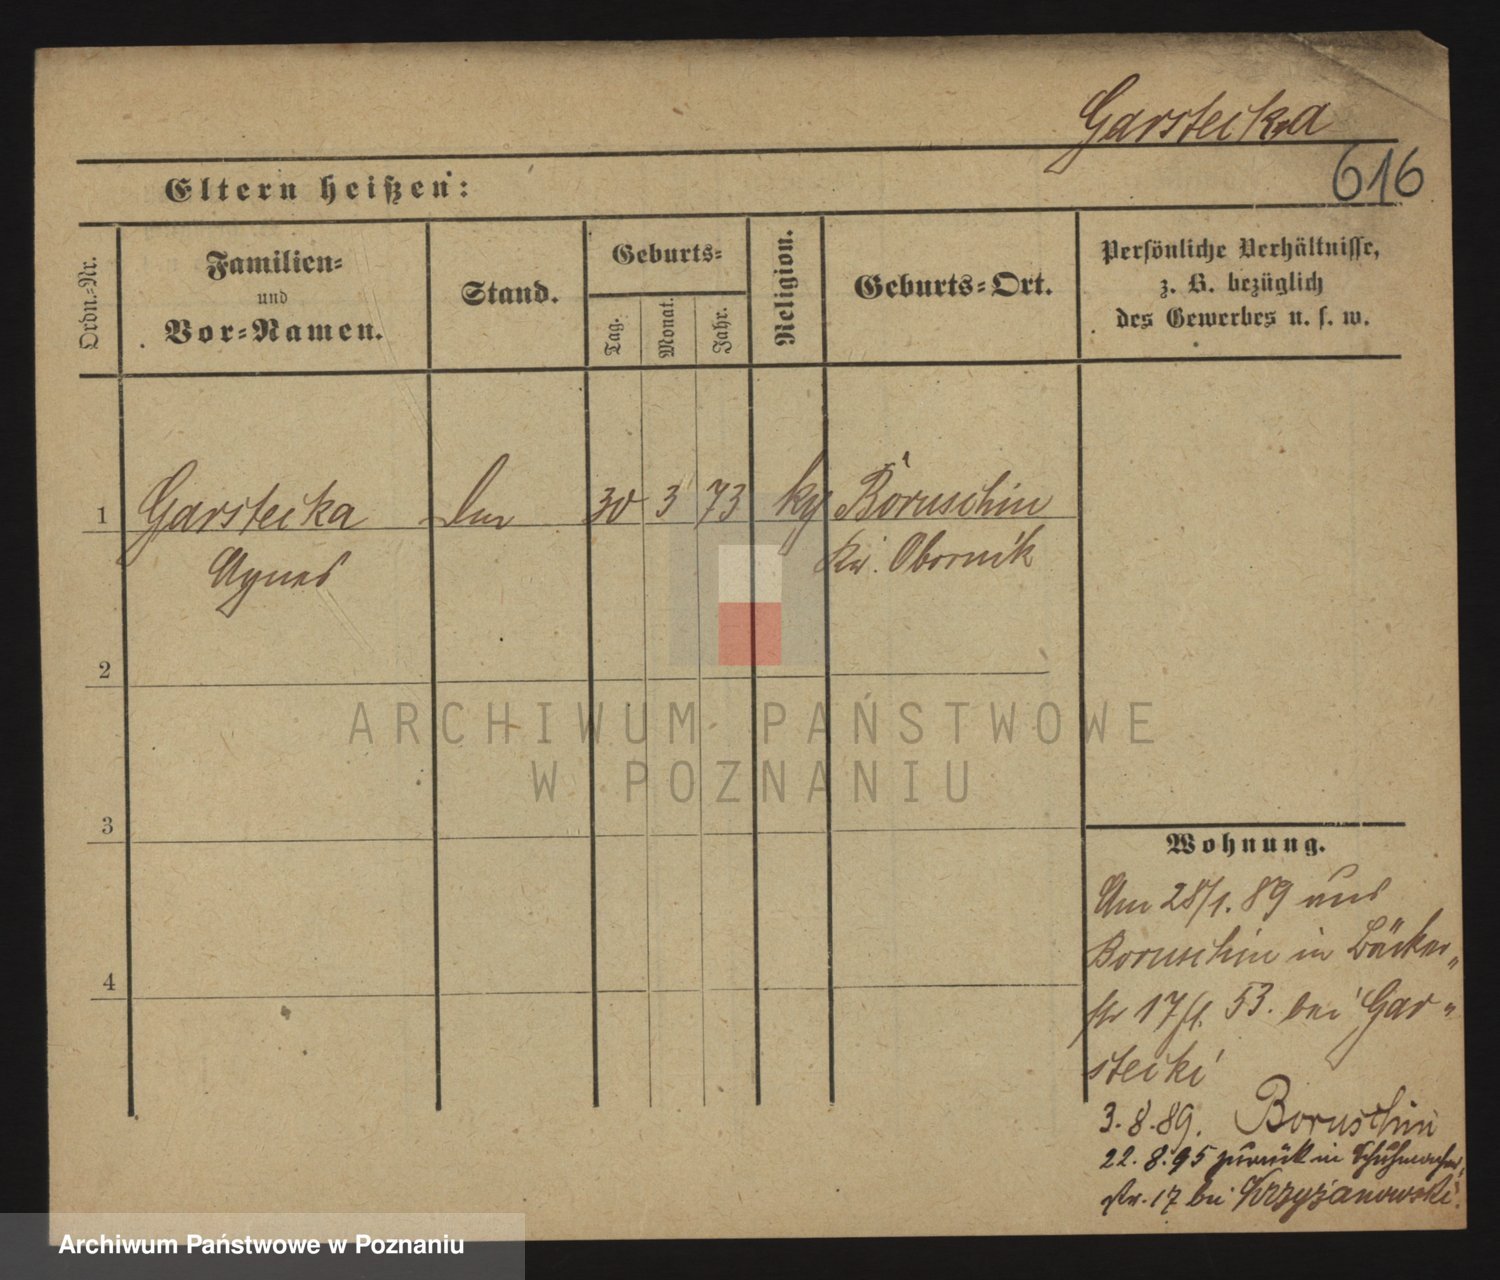 Garstecka
616
Eltern heißen:
Ordn.-Nr.
Familien-
und
Vor-Namen.
Stand.
Geburts-
Tag.
Monat.
Jahr.
Religion.
Geburts-Ort.
Persönliche Verhältnisse,
z. B. bezüglich
des Gewerbes u. s. w.
1 Garstecka 30 3 73 Boruschin
Agnes Kr. Obornik
2
3
4
Wohnung.
Am 28/1. 89 aus
Boruschin in Bäcker„
str 17 53. bei Gar„
stecki
3.8.89. Boruschin
22.8.95 zurück in Schuhmacher„
str. 17 bei Krzyżanowski.
ARCHIWUM PAŃSTWOWE
W POZNANIU
Archiwum Państwowe w Poznaniu